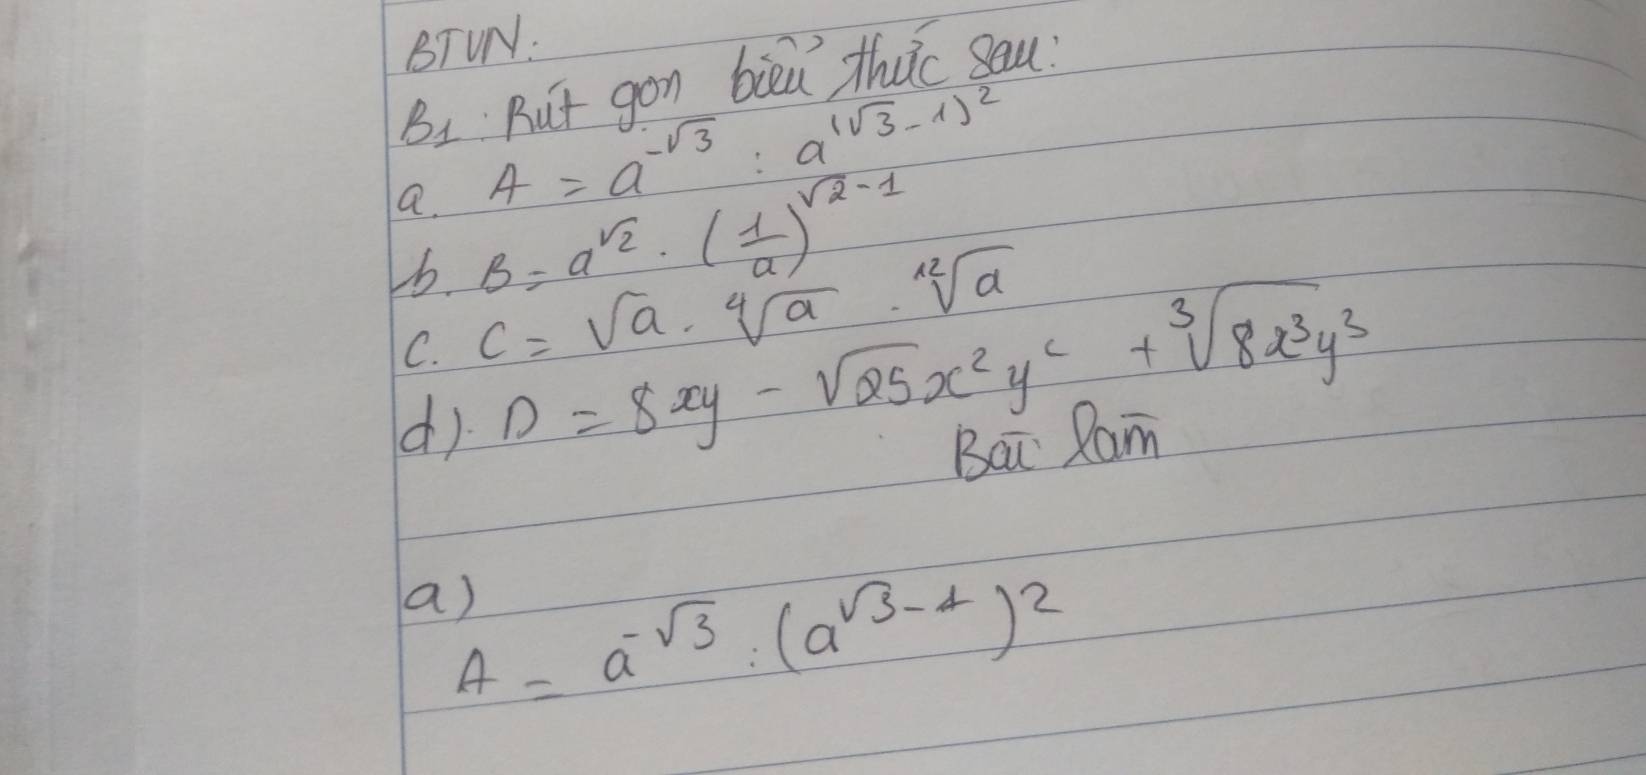 BTVN:
B1: Rút gọn biểu thức sau:
a. A = a^{-√3} : a^{(√3-1)^2}
b. B = a^{√2} . (1/a)^{√2-1}
c. C = √a . ⁴√a . ¹²√a
d). D = 8xy - √25x²y² + ³√8x³y³
Bài làm
a)
A = a^{-√3} : (a^{√3-1})²